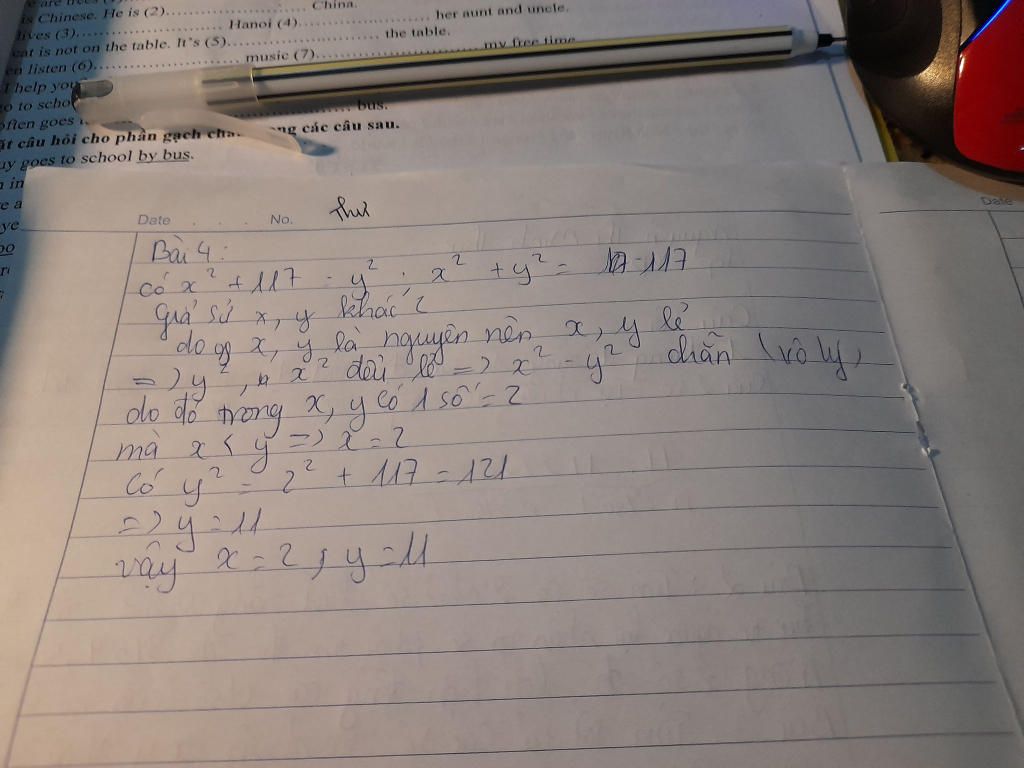 is Chinese. He is (2)........................ China.
lives (3)........................ Hanoi (4)........................ her aunt and uncle.
cat is not on the table. It's (5)........................ the table.
en listen (6)........................ music (7)........................ my free time
I help you
go to scho
often goes
bus.
ặt câu hỏi cho phần gạch châ ng các câu sau.
uy goes to school by bus.
Date . . . . No. Thư
Date
Bài 4:
có x² + 117 = y² ; x² + y² = 17 -117
giả sử x, y khác 2
do x, y là nguyên nên x, y lẻ
=> y², x² đều lẻ => x² - y² chẵn (vô lý)
do đó trong x, y có 1 số = 2
mà x < y => x = 2
có y² = 2² + 117 = 121
=> y = 11
vậy x = 2 ; y = 11